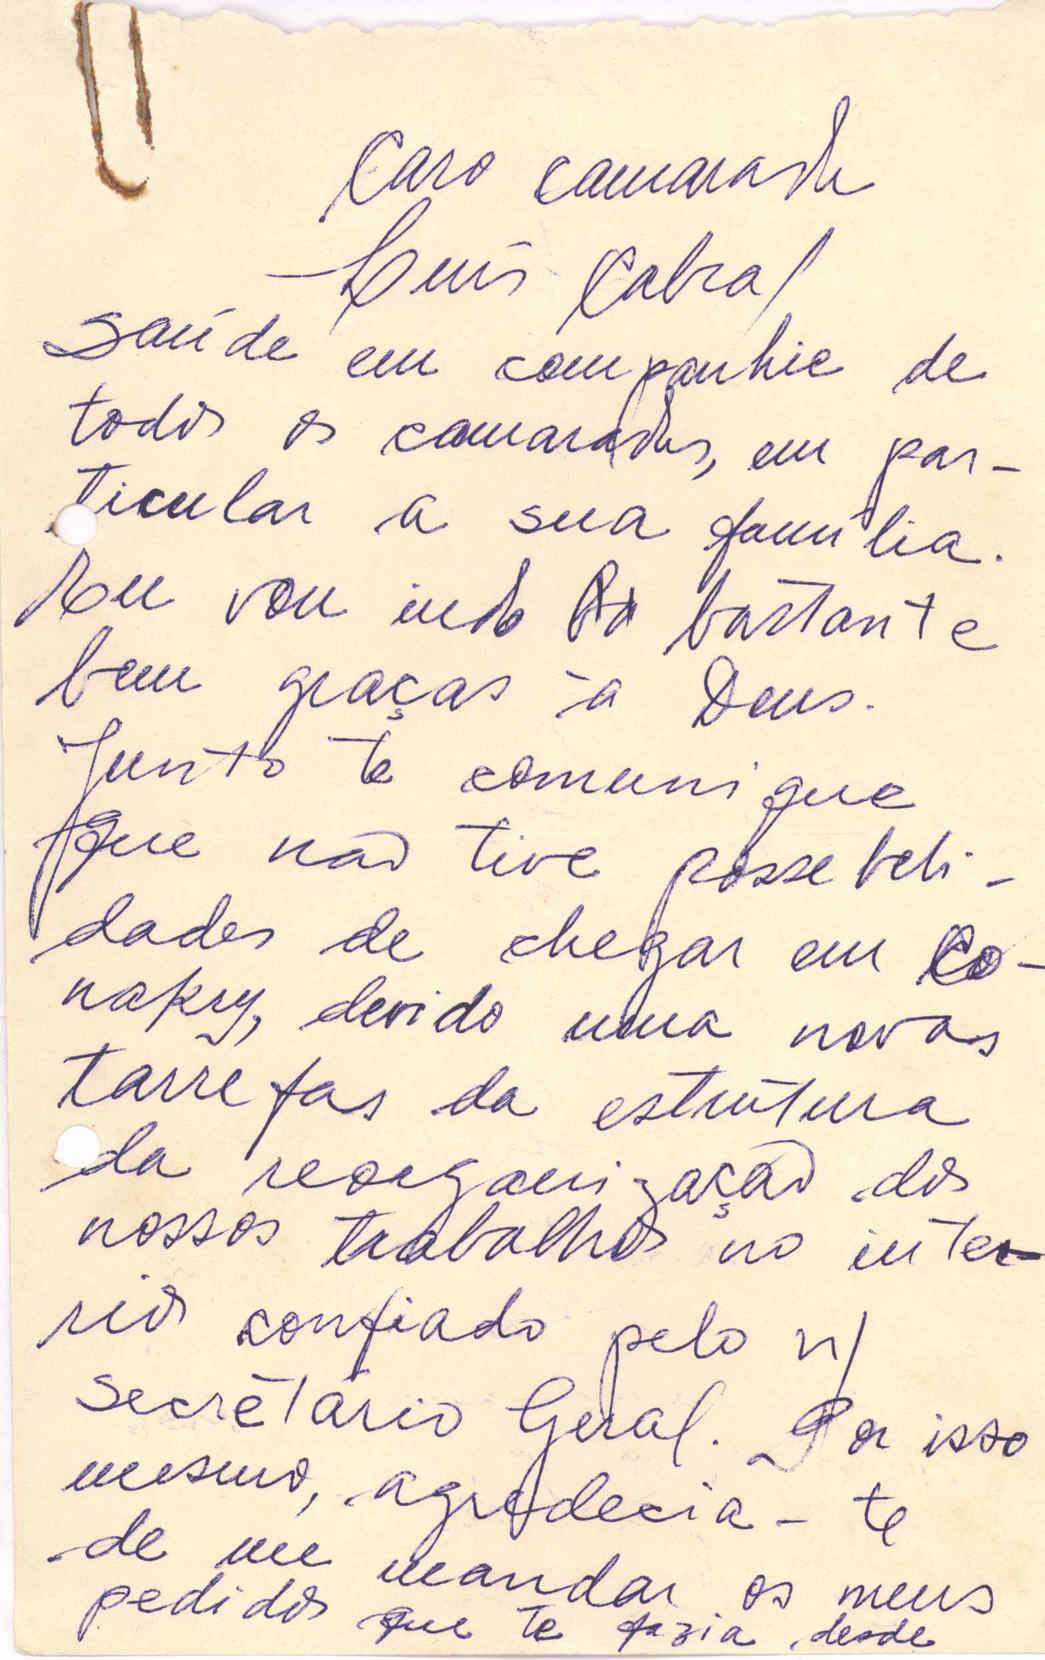 Caro camarada
Luís Cabral
Saúde em companhia de
todos os camaradas, em par-
ticular a sua família.
Eu vou indo bastante
bem graças à Deus.
Junto te comunique
que não tive possebeli-
dades de chegar em Co-
nakry, devido uma novas
tarrefas da estrutura
da reorganização dos
nossos trabalhos no inte-
rior confiado pelo n/
Secretário Geral. Por isso
mesmo, agradecia-te
de me mandar os meus
pedidos que te fazia desde